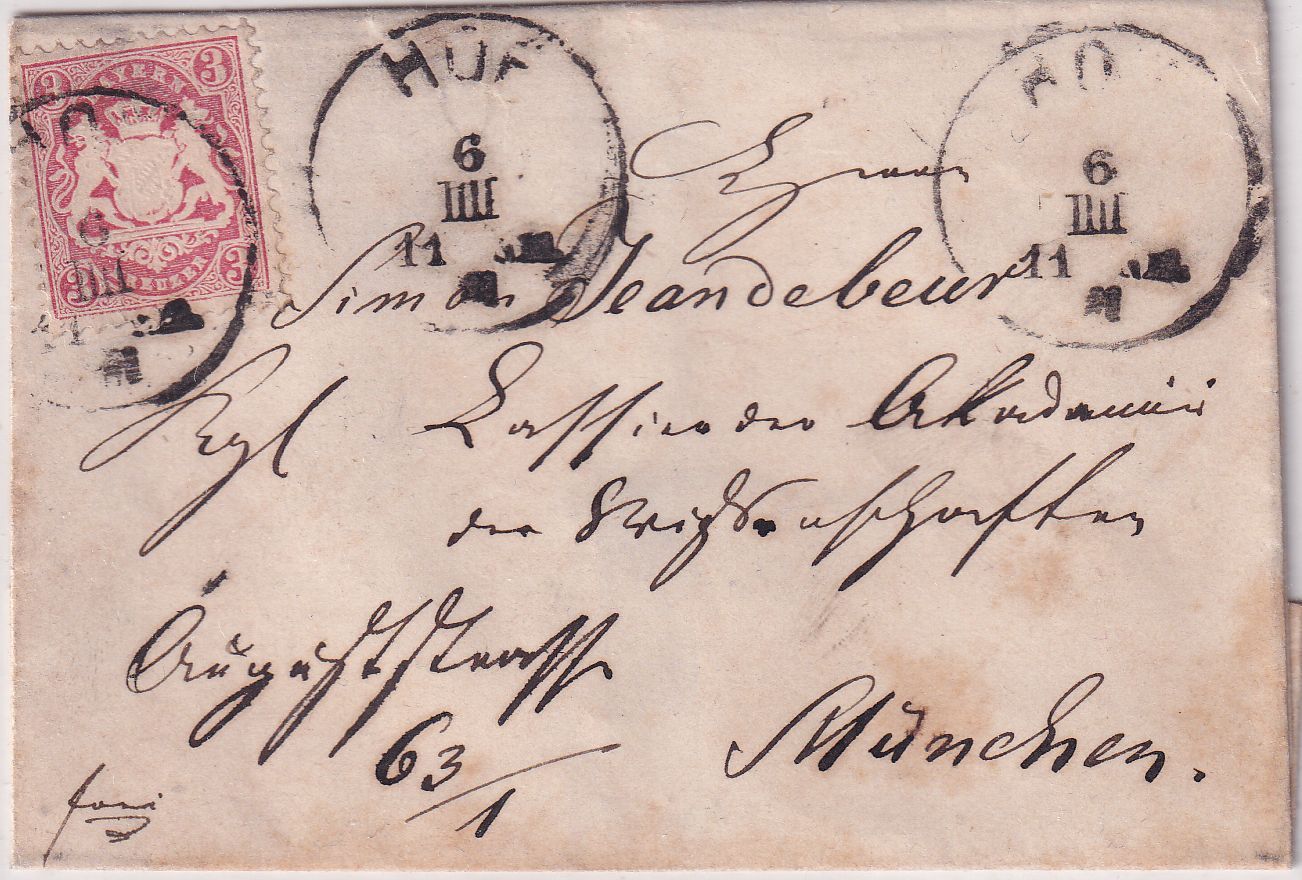 3 BAYERN 3
3 KREUZER 3
HO
6
IIII
11
HOF
6
IIII
11
HO
6
IIII
11
Herrn
Simon Jeandebeur
Kgl Cassier der Akademie
der Wissenschaften
Auguststrasse
63/1
München.
frei